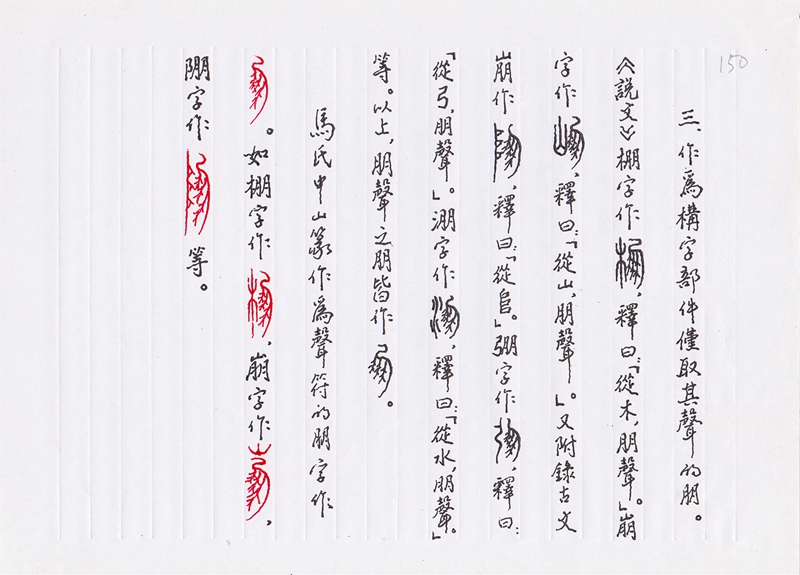 150
三、作爲構字部件僅取其聲的朋。
《說文》棚字作，釋曰：「從木，朋聲。」崩
字作，釋曰：「從山，朋聲」。又附錄古文
崩作，釋曰：「從𨸏。」弸字作，釋曰：
「從弓，朋聲」。淜字作，釋曰：「從水，朋聲。」
等。以上，朋聲之朋皆作。
馬氏中山篆作爲聲符的朋字作
。如棚字作，崩字作，
𨺀字作等。